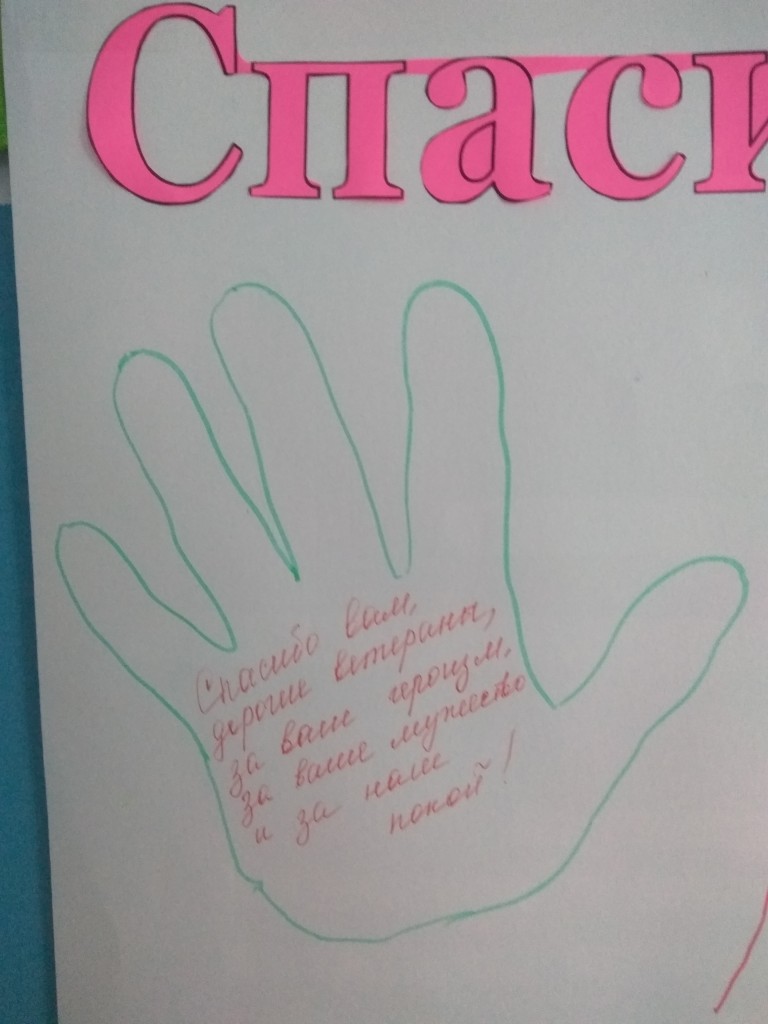 Спаси
Спасибо вам,
дорогие ветераны,
за ваш героизм,
за ваше мужество
и за наш
покой!